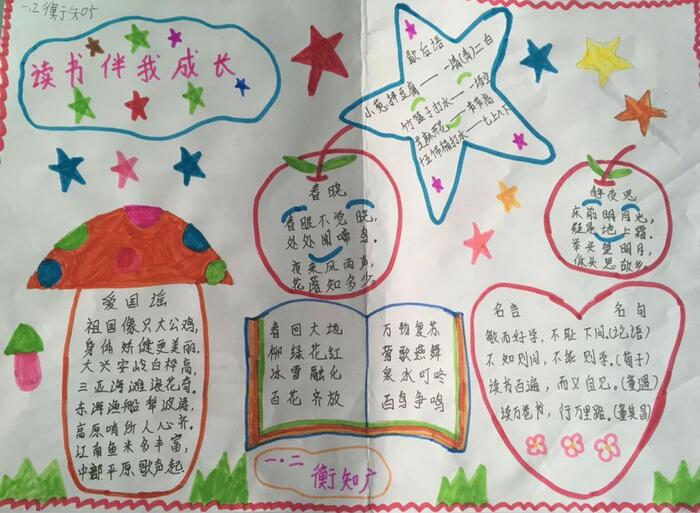 一.2衡知广
读书伴我成长
歇后语
小葱拌豆腐——一清(青)二白
竹篮子打水——一场空
芝麻开花——节节高
打水——七上八下
春晓
春眠不觉晓,
处处闻啼鸟。
夜来风雨声,
花落知多少。
静夜思
床前明月光,
疑是地上霜。
举头望明月,
低头思故乡。
爱国谣
祖国像只大公鸡,
身体矫健更美丽.
大兴安岭白桦高,
三亚海滩浪花奇.
东海渔船犁波浪,
高原哨所人心齐.
江南鱼米多丰富,
中部平原歌声起.
春回大地
柳绿花红
冰雪融化
百花齐放
万物复苏
莺歌燕舞
泉水叮咚
百鸟争鸣
一.二
衡知广
名言 名句
敏而好学,不耻下问.(论语)
不知则问,不能则学.(荀子)
读书百遍,而义自见.(董遇)
读万卷书,行万里路.(董其昌)